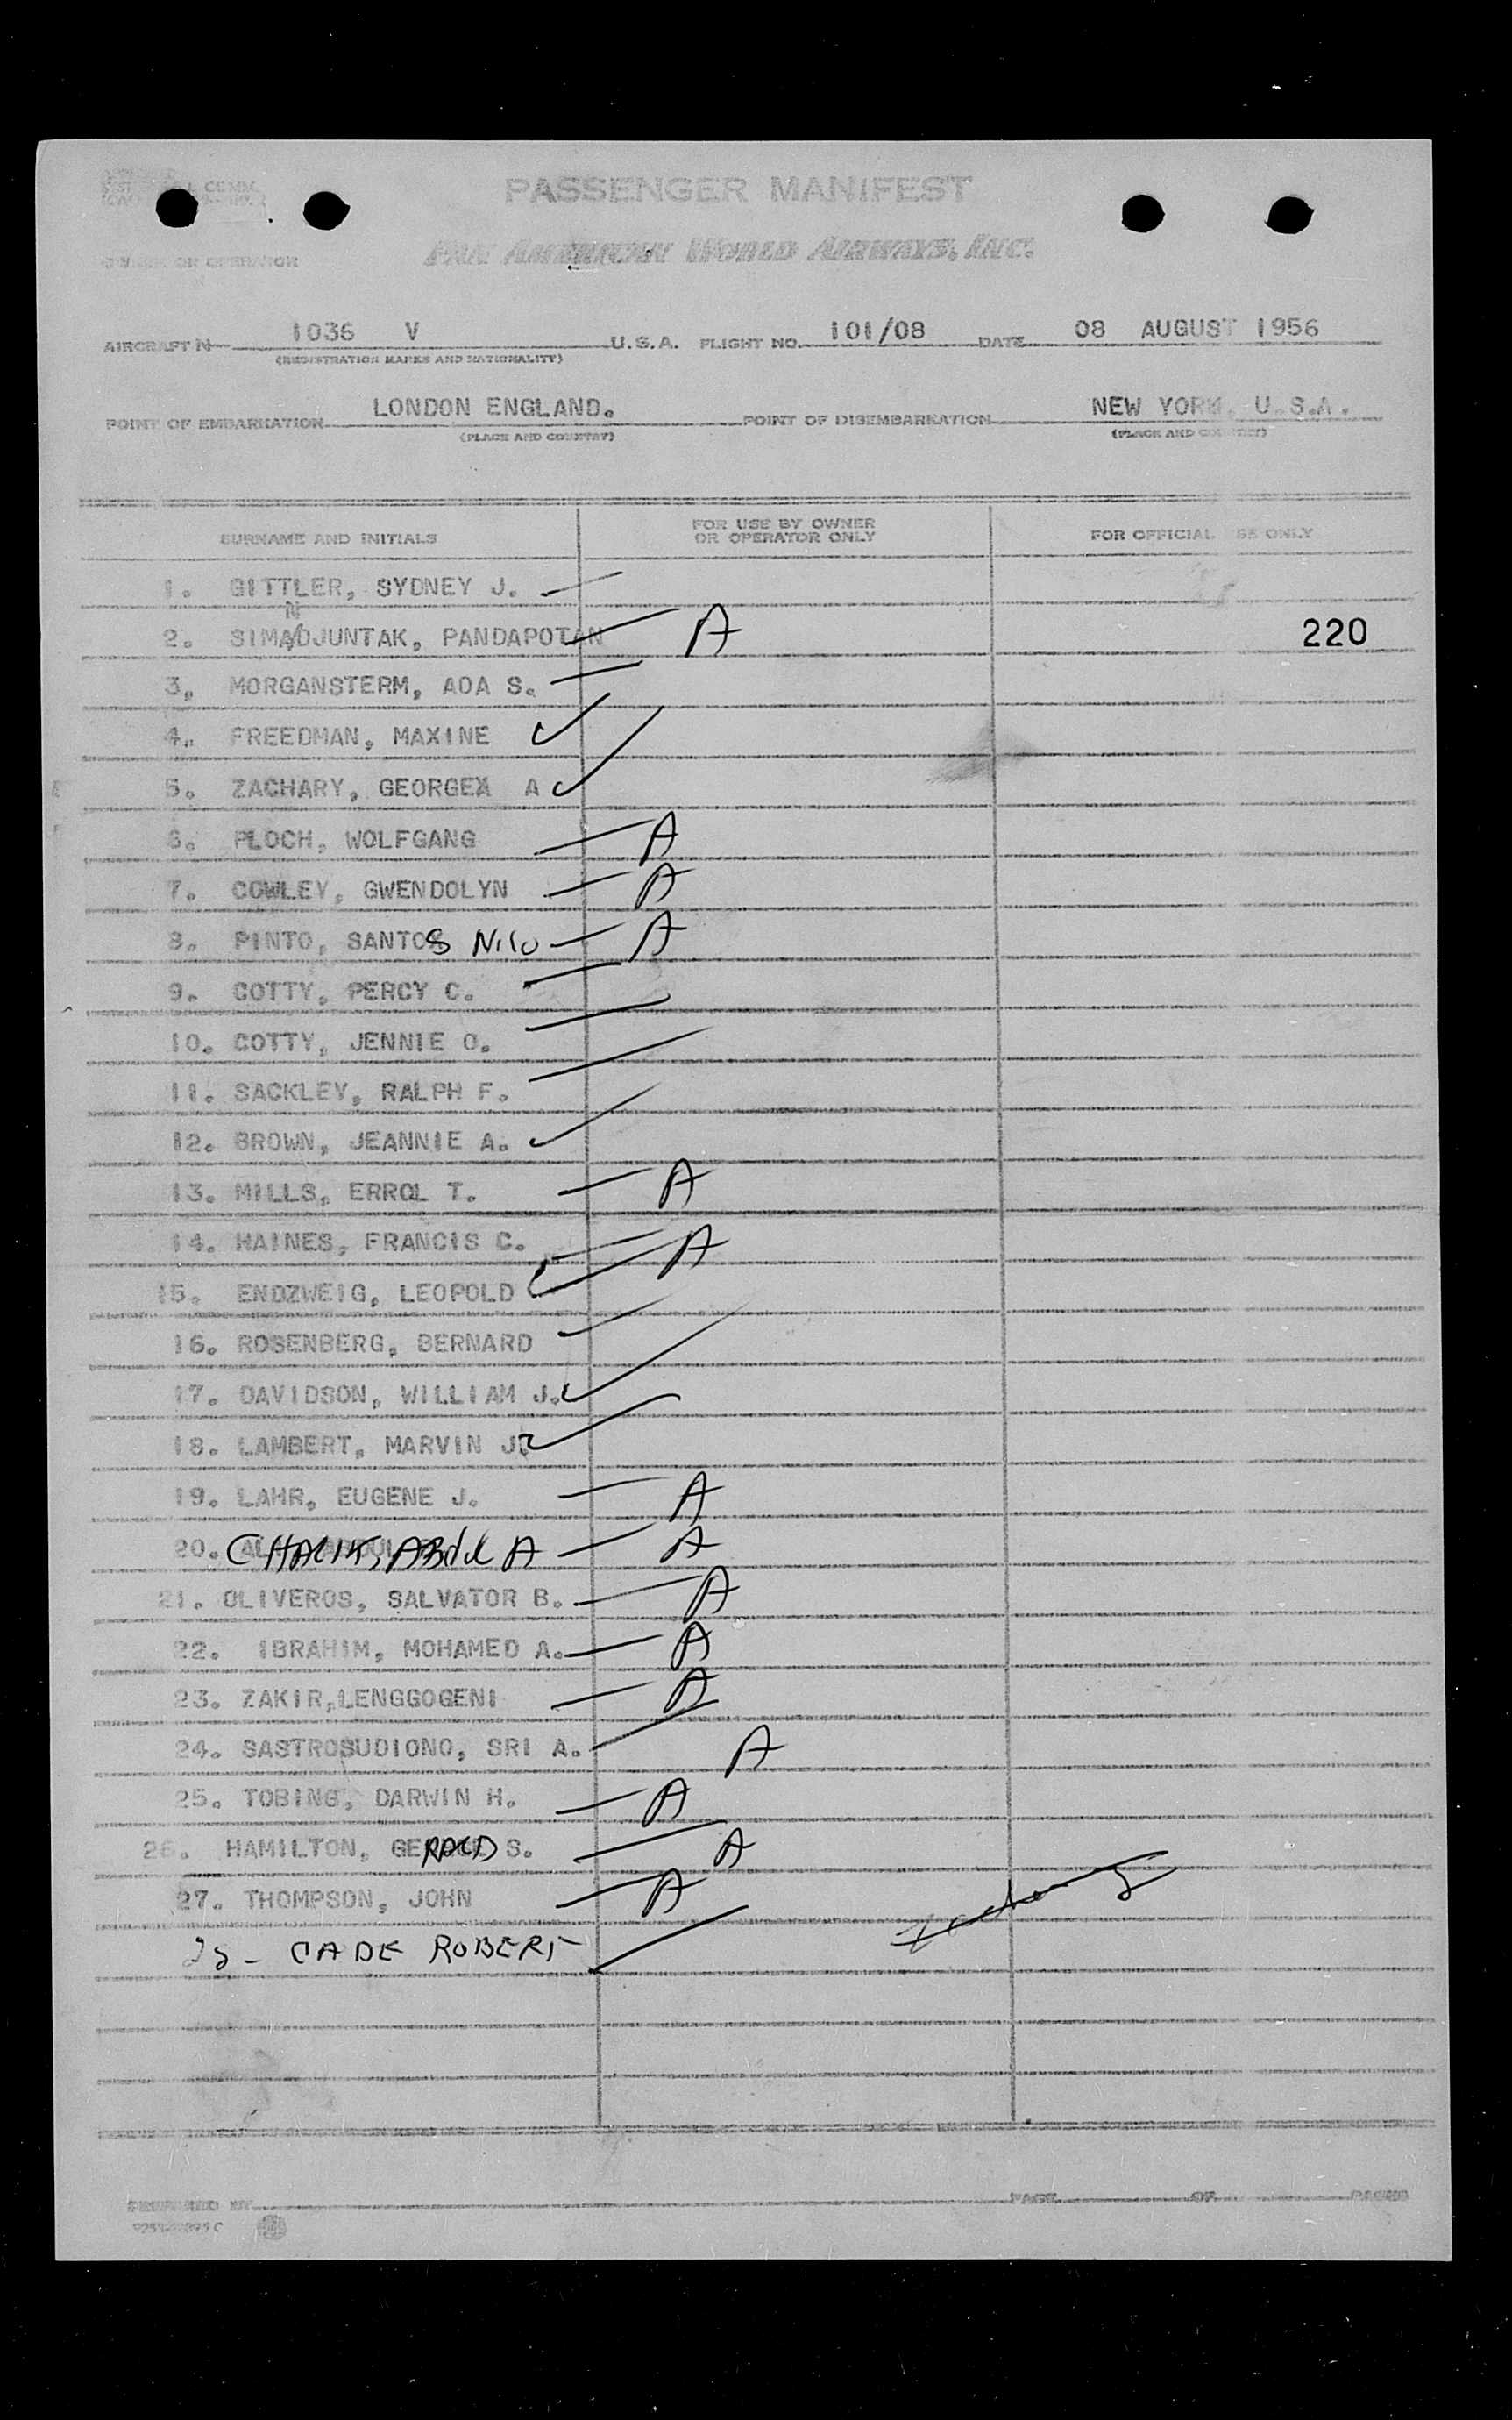 PASSENGER MANIFEST
PAN AMERICAN WORLD AIRWAYS, INC.
OWNER OR OPERATOR
AIRCRAFT N 1036 V U.S.A. FLIGHT NO. 101/08 DATE 08 AUGUST 1956
(REGISTRATION MARKS AND NATIONALITY)
POINT OF EMBARKATION LONDON ENGLAND. POINT OF DISEMBARKATION NEW YORK, U.S.A.
(PLACE AND COUNTRY) (PLACE AND COUNTRY)
SURNAME AND INITIALS FOR USE BY OWNER OR OPERATOR ONLY FOR OFFICIAL USE ONLY
1. GITTLER, SYDNEY J.
N
2. SIMADJUNTAK, PANDAPOTAN A 220
3. MORGANSTERM, AOA S.
4. FREEDMAN, MAXINE
5. ZACHARY, GEORGEX A
6. PLOCH, WOLFGANG A
7. COWLEY, GWENDOLYN A
8. PINTO, SANTOS Nilo A
9. COTTY, PERCY C.
10. COTTY, JENNIE O.
11. SACKLEY, RALPH F.
12. BROWN, JEANNIE A.
13. MILLS, ERROL T. A
14. HAINES, FRANCIS C. A
15. ENDZWEIG, LEOPOLD
16. ROSENBERG, BERNARD
17. DAVIDSON, WILLIAM J.
18. LAMBERT, MARVIN J.
19. LAHR, EUGENE J. A
20. CHALIK, ABdul A A
21. OLIVEROS, SALVATOR B. A
22. IBRAHIM, MOHAMED A. A
23. ZAKIR,LENGGOGENI A
24. SASTROSUDIONO, SRI A. A
25. TOBING, DARWIN H. A
26. HAMILTON, GERALD S. A
27. THOMPSON, JOHN A
28 - CADE ROBERT
PREPARED BY PAGE OF PAGES